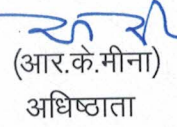 (आर.के.मीना)
अधिष्ठाता